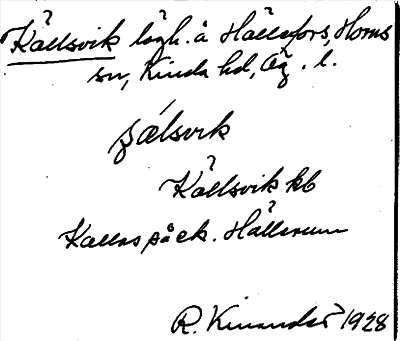 Källsvik lägh. å Hällefors, Horns
sn, Kinda hd, Ög. l.
sälsvik
Källsvik kb
Kallas påck. Hällerum
R. Kinander 1928